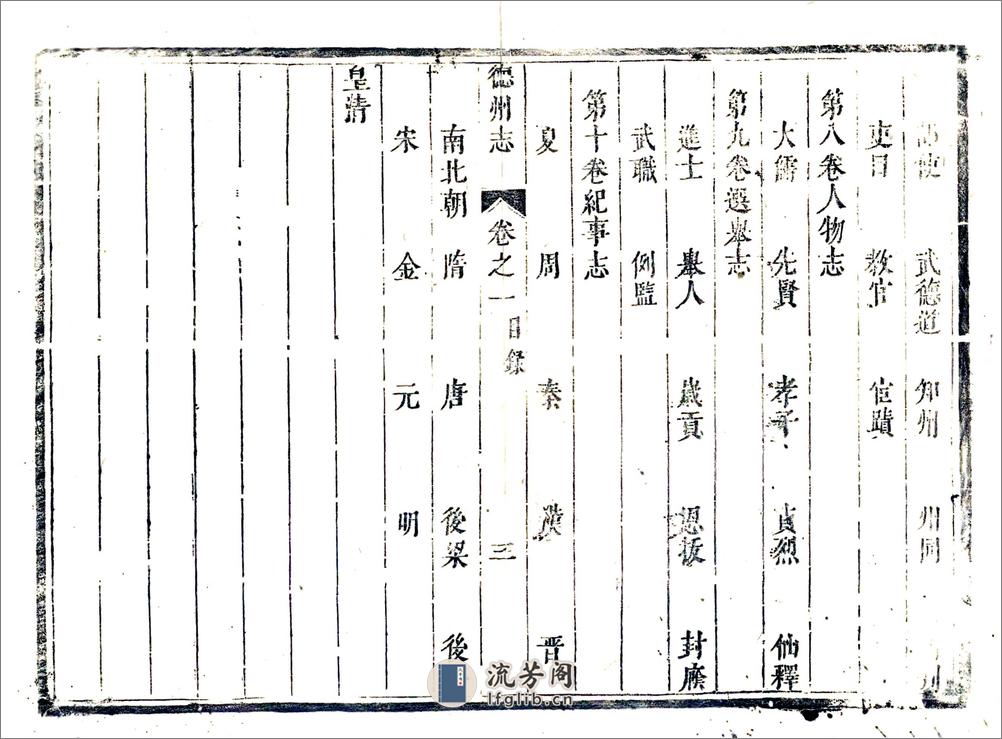 武德道 知州 州同
吏目 教官 宦蹟
第八卷人物志
大儒 先賢 孝子 貞烈 仙釋
第九卷選舉志
進士 舉人 歲貢 恩拔 封廕
武職 例監
第十卷紀事志
夏 周 秦 漢 晋
德州志 卷之一 目錄 三
南北朝 隋 唐 後梁 後
宋 金 元 明
皇清
流芳阁
lfglib.cn